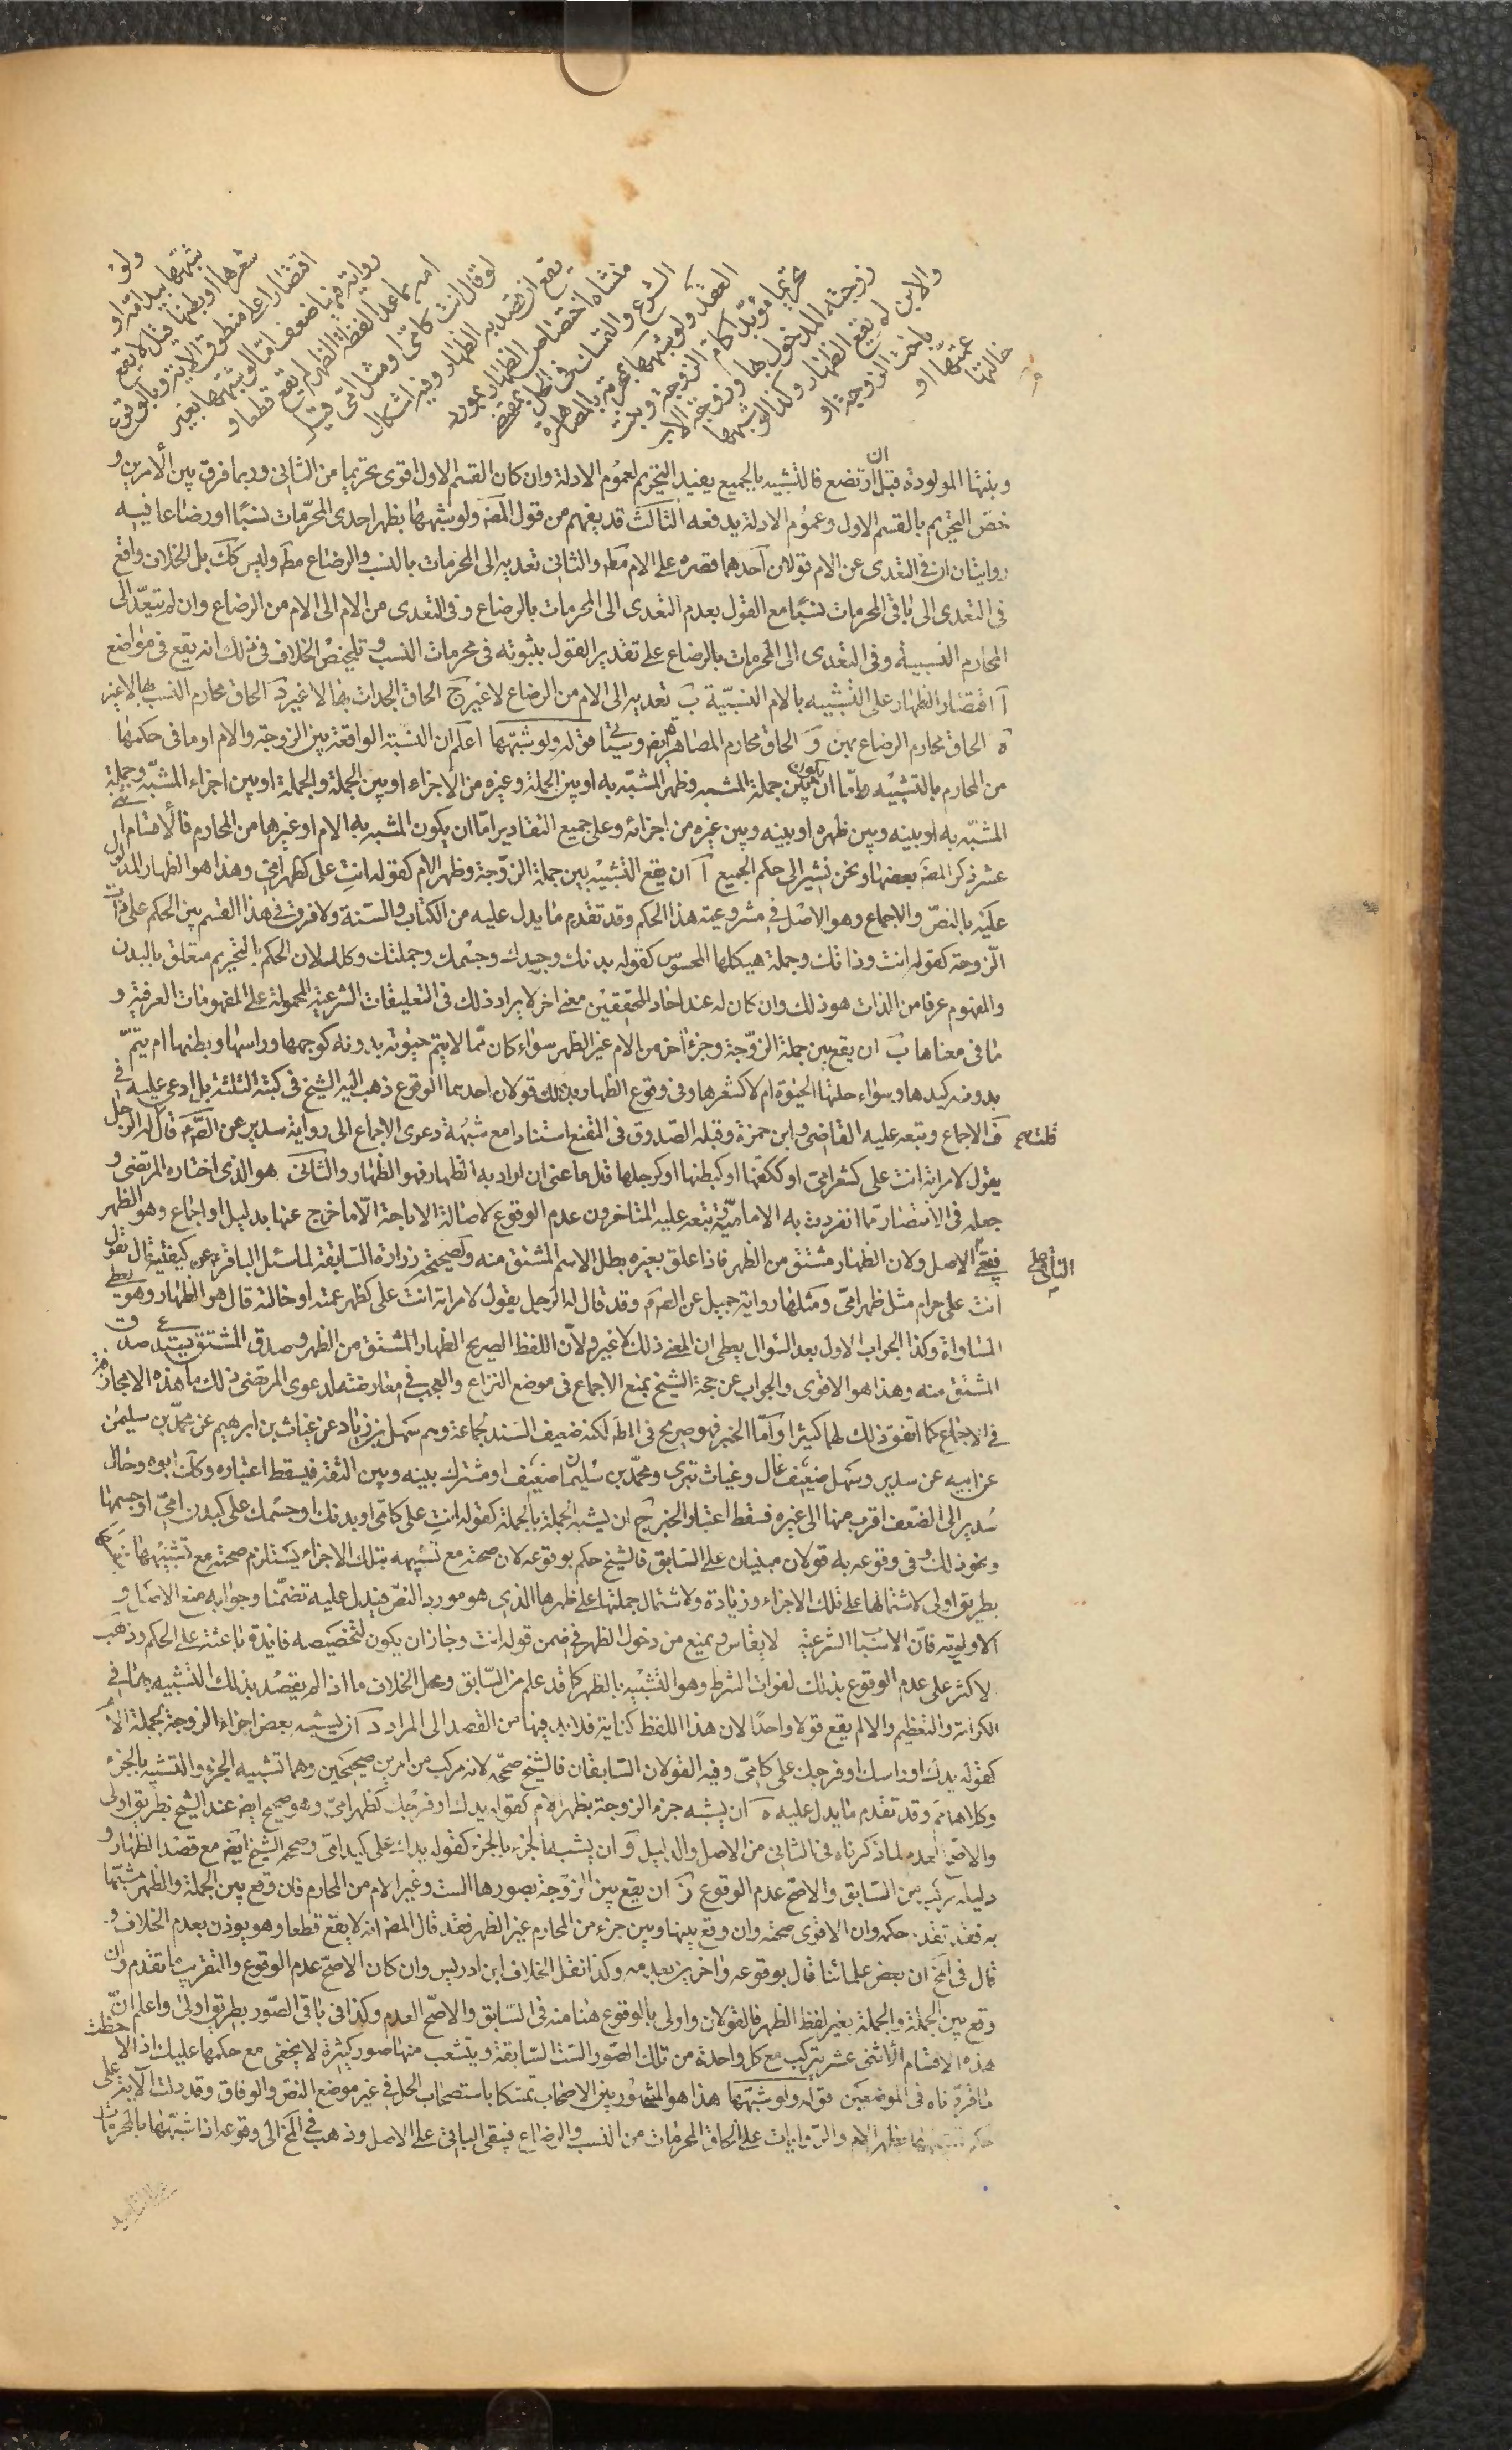 ولو
شبهها بيد امه او
شعرها او بطنها قيل لا يقع
اقتصارا على منطوق الاية وبالوقوع
رواية فيها ضعف اما لو شبهها بغير
امه بما عدا لفظة الظهر لم يقع قطعا و
لو قال انت كامى او مثل امى قيل
يقع ان قصد به الظهار وفيه اشكال
منشاه اختصاص الظهار بمورد
الشرع والتمسك فى الحل بمقتضى
العقد ولو شبهها بمحرمة بالمصاهرة
تحريما مؤبدا كام الزوجة وبنت
زوجته المدخول بها وزوجة الاب
والابن لم يقع الظهار وكذا لو شبهها
باخت الزوجة او
عمتها او
خالتها
وبنتها المولودة قبل ان ترتضع فالتشبيه بالجميع يفيد التحريم لعموم الادلة وان كان القسم الاول اقوى تحريما من الثانى وربما فرق بين الامرين و
خص التحريم بالقسم الاول وعموم الادلة يدفعه الثالث قد يفهم من قول المصَ ولو شبهها بظهر احدى المحرمات نسبًا او رضاعا فيه
روايتان ان فى التعدى عن الام قولان احدهما قصره على الام مطَ والثانى تعديه الى المحرمات بالنسب والرضاع مطَ وليس كك بل الخلاف واقع
فى التعدى الى باقى المحرمات نسبًا مع القول بعدم التعدى الى المحرمات بالرضاع وفى التعدى من الام الى الام من الرضاع وان لم يتعد الى
المحارم النسبية وفى التعدى الى المحرمات بالرضاع على تقدير القول بثبوته فى محرمات النسب وتلخيص الخلاف فى ذلك انه يقع فى مواضع
آ اقتصار الظهار على التشبيه بالام النسبية ب تعديه الى الام من الرضاع لا غير ج الحاق الجدات بها لا غير د الحاق محارم النسب بها لا غير
ه الحاق محارم الرضاع بهن و الحاق محارم المصاهرة ايضَ وسياتى قوله ولو شبهها اعلم ان النسبة الواقعة بين الزوجة والام او ما فى حكمها
من المحارم بالتشبيه اما ان يكون بين جملة المشبه وظهر المشبه به او بين الجملة وغيره من الاجزاء او بين الجملة والجملة او بين اجزاء المشبه وجملة
المشبه به او بينه وبين ظهره او بينه وبين غيره من اجزائه وعلى جميع التقادير اما ان يكون المشبه به الام او غيرها من المحارم فالاقسام اثنى
عشر ذكر المصَ بعضها ونحن نشير الى حكم الجميع آ ان يقع التشبيه بين جملة الزوجة وظهر الام كقوله انتِ على كظهر امى وهذا هو الظهار المدلول
عليه بالنص والاجماع وهو الاصل فى مشروعية هذا الحكم وقد تقدم ما يدل عليه من الكتاب والسنة ولا فرق فى هذا القسم بين الحكم على ذات
الزوجة كقوله انت وذاتك وجملة هيكلها المحسوس كقوله بدنك وجسدك وجسمك وجملتك وكلك لان الحكم بالتحريم متعلق بالبدن
والمفهوم عرفا من الذات هو ذلك وان كان له عند احاد المحققين معنى اخر لا يراد ذلك فى التعليقات الشرعية المحمولة على المفهومات العرفية و
ما فى معناها ب ان يقع بين جملة الزوجة وجزء اخر من الام غير الظهر سواء كان مما لا يتم حيوته بدونه كوجهها وراسها وبطنها ام يتم
بدونه كيدها وسواء حلتها الحيوة ام لا كشعرها وفى وقوع الظهار بذلك قولان احدهما الوقوع ذهب اليه الشيخ فى كتبه الثلثة بل ادعى عليه فى
فَ الاجماع وتبعه عليه القاضى وابن حمزة وقبله الصدوق فى المقنع استنادا مع شبهة دعوى الاجماع الى رواية سدير عن الصَ عَ قال قلت له الرجل
يقول لامراته انت على كشعر امى او ككفها او كبطنها او كرجلها قال ما عنى ان اراد به الظهار فهو الظهار والثانى هو الذى اختاره المرتضى و
جعله فى الانتصار مما انفردت به الامامية وتبعه عليه المتاخرون عدم الوقوع لاصالة الاباحة الا ما خرج عنها بدليل او اجماع وهو الظهر
فيبقى الباقى على الاصل ولان الظهار مشتق من الظهر فاذا علق بغيره بطل الاسم المشتق منه ولصحيحة زرارة السابقة لما سئل الباقر عَ عن كيفيته قال يقول
انت على حرام مثل ظهر امى ومثلها رواية جميل عن الصَ عَ وقد قال له الرجل يقول لامراته انت على كظهر عمته او خالته قال هو الظهار وهو يعطى
المساواة وكذا الجواب الاول بعد السؤال يعطى ان المعنى ذلك لا غير ولان اللفظ الصريح الظهار المشتق من الظهر وصدق المشتق يستدعى صدق
المشتق منه وهذا هو الاقوى والجواب عن حجة الشيخ بمنع الاجماع فى موضع النزاع والعجب فى معارضتها لدعوى المرتضى ذلك وما هذه الا مجازفة
فى الاجماع كما اتفق ذلك لهما كثيرا واما الخبر فهو صريح فى الط لكنه ضعيف السند بجماعة وهم سهل بن زياد عن غياث بن ابرهيم عن محمد بن سليمن
عن ابيه عن سدير وسهل ضعيف غال وغياث بترى ومحمد بن سليمان ضعيف او مشترك بينه وبين الثقة فيسقط اعتباره وكذا ابوه وحال
سدير الى الضعف اقرب منها الى غيره فسقط اعتبار الخبر ج ان يشبه الجملة بالجملة كقوله انتِ على كامى او بدنك او جسمك على كبدن امى او جسمها
ونحو ذلك وفى وقوعه به قولان مبنيان على السابق فالشيخ حكم بوقوعه لان صحته مع تشبيهه بتلك الاجزاء يستلزم صحته مع تشبيهها بها
بطريق اولى لاشتمالها على تلك الاجزاء وزيادة ولاشتمال جملتها على ظهرها الذى هو مورد النص فيدل عليه تضمنا وجوابه منع الاجماع و
الاولوية فان الاسباب الشرعية لا يقاس ويمنع من دخول الظهر فى ضمن قوله انت وجاز ان يكون لتخصيصه فايدة باعثة على الحكم وذهب
لاكثر على عدم الوقوع بذلك لفوات الشرط وهو التشبيه بالظهر كما قد علم من السابق ومحل الخلاف ما اذا لم يقصد بذلك التشبيه بها فى
الكرامة والتعظيم والا لم يقع قولا واحدًا لان هذا اللفظ كناية فلا بد فيها من القصد الى المراد د ان يشبه بعض اجزاء الزوجة بجملة الام
كقوله يدك او راسك او فرجك على كامى وفيه القولان السابقان فالشيخ صححه لانه مركب من امرين صحيحين وهما تشبيه الجزء والتشبيه بالجزء
وكلاهما تم وقد تقدم ما يدل عليه ه ان يشبه جزء الزوجة بظهر الام كقوله يدك او فرجك كظهر امى وهو صحيح ايضَ عند الشيخ بطريق اولى
والاصح العدم لما ذكرناه فى الثانى من الاصل والدليل و ان يشبه الجزء بالجزء كقوله يدك على كيد امى وصححه الشيخ ايضَ مع قصد الظهار و
دليله مركب من السابق والاصح عدم الوقوع ز ان يقع بين الزوجة بصورها الست وغير الام من المحارم فان وقع بين الجملة والظهر مشبها
به فقد تقدم حكمه وان الاقوى صحته وان وقع بينها وبين جزء من المحارم غير الظهر فقد قال المصَ انه لا يقع قطعا وهو يؤذن بعدم الخلاف و
قال فى لَخ ان بعض علمائنا قال بوقوعه واخرين بعدمه وكذا نقل الخلاف ابن ادريس وان كان الاصح عدم الوقوع والتقريب ما تقدم وان
وقع بين الجملة والجملة بغير لفظ الظهر فالقولان واولى بالوقوع هنا منه فى السابق والاصح العدم وكذا فى باقى الصور بطريق اولى واعلم ان
هذه الاقسام الاثنى عشر يتركب مع كل واحدة من تلك الصور الست السابقة ويتشعب منها صور كثيرة لا يخفى مع حكمها عليك اذا لاحظت
ما قررناه فى الموضعين قوله ولو شبهها هذا هو المشهور بين الاصحاب تمسكا باستصحاب الحل فى غير موضع النص والوفاق وقد دلت الاية على
حكم تشبيهها بظهر الام والروايات على الحاق المحرمات من النسب والرضاع فيبقى الباقى على الاصل وذهب فى لَخ الى وقوعه اذا شبهها بالمحرمات